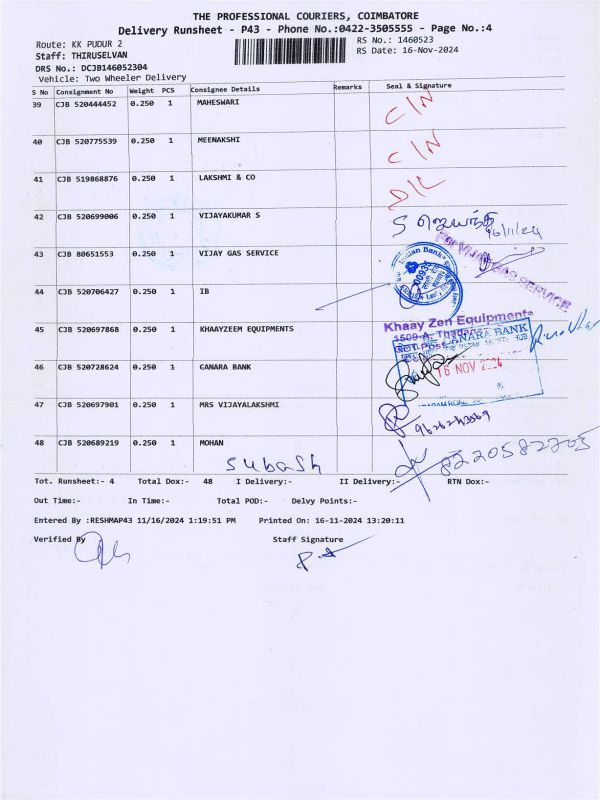 THE PROFESSIONAL COURIERS, COIMBATORE
Delivery Runsheet - P43 - Phone No.:0422-3505555 - Page No.:4
Route: KK PUDUR 2
RS No.: 1460523
Staff: THIRUSELVAN
RS Date: 16-Nov-2024
DRS No.: DCJB146052304
Vehicle: Two Wheeler Delivery
S No Consignment No Weight PCS Consignee Details Remarks Seal & Signature
39 CJB 520444452 0.250 1 MAHESWARI C/N
40 CJB 520775539 0.250 1 MEENAKSHI C/N
41 CJB 519868876 0.250 1 LAKSHMI & CO D/L
42 CJB 520699006 0.250 1 VIJAYAKUMAR S S ஜெயந்தி
16/11/24
43 CJB 80651553 0.250 1 VIJAY GAS SERVICE For VIJAY GAS SERVICE
Indian Bank
44 CJB 520706427 0.250 1 IB
45 CJB 520697868 0.250 1 KHAAYZEEM EQUIPMENTS Khaay Zen Equipments
1509-A,
CANARA BANK
46 CJB 520728624 0.250 1 CANARA BANK 16 NOV 2024
47 CJB 520697901 0.250 1 MRS VIJAYALAKSHMI
9626243569
48 CJB 520689219 0.250 1 MOHAN
Subash 8220582705
Tot. Runsheet:- 4 Total Dox:- 48 I Delivery:- II Delivery:- RTN Dox:-
Out Time:- In Time:- Total POD:- Delvy Points:-
Entered By :RESHMAP43 11/16/2024 1:19:51 PM Printed On: 16-11-2024 13:20:11
Verified By Staff Signature